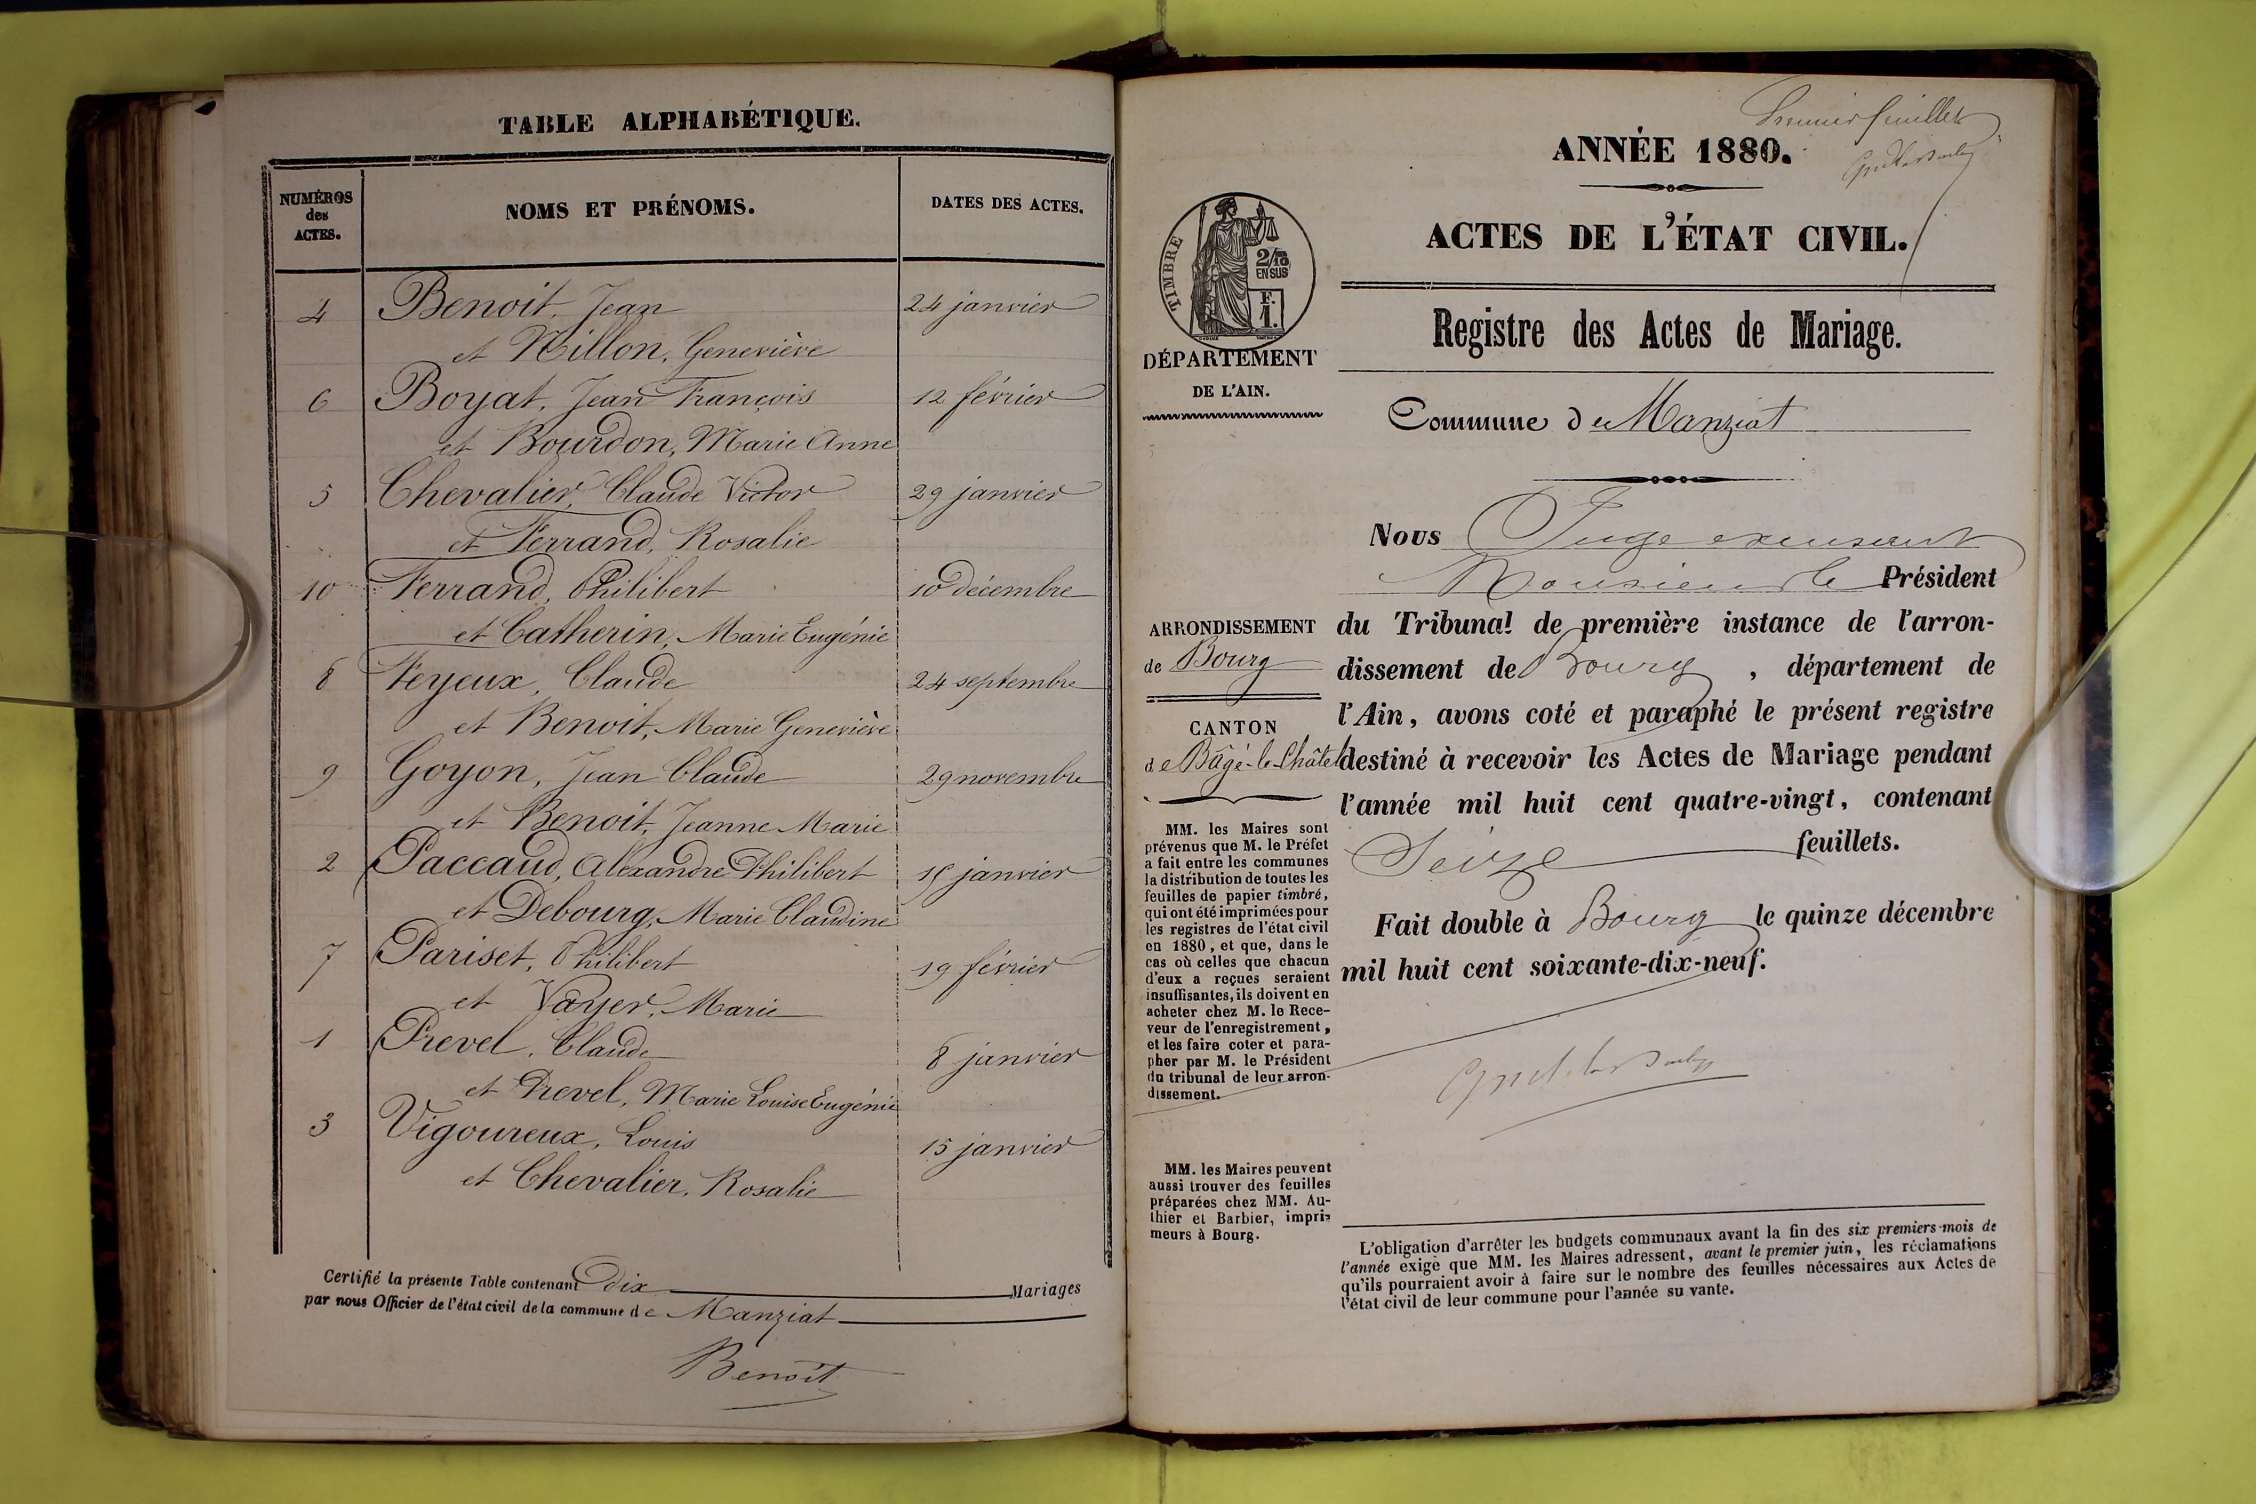 TABLE ALPHABÉTIQUE.
NUMÉROS des ACTES.
NOMS ET PRÉNOMS.
DATES DES ACTES.
4 Benoit, Jean 24 janvier
et Nillon, Geneviève
6 Boyat, Jean François 12 février
et Bourdon, Marie Anne
5 Chevalier, Claude Victor 29 janvier
et Ferrand, Rosalie
10 Ferrand, Philibert 10 décembre
et Catherin, Marie Eugénie
8 Feyeux, Claude 24 septembre
et Benoit, Marie Geneviève
9 Goyon, Jean Claude 29 novembre
et Benoit, Jeanne Marie
2 Paccaud, Alexandre Philibert 15 janvier
et Debourg, Marie Claudine
7 Pariset, Philibert 19 février
et Vayer, Marie
1 Prevel, Claude 8 janvier
et Prevel, Marie Louise Eugénie
3 Vigoureux, Louis 15 janvier
et Chevalier, Rosalie
Certifié la présente Table contenant dix Mariages
par nous Officier de l'état civil de la commune de Manziat
Benoît
Premier feuillet
ANNÉE 1880.
ACTES DE L'ÉTAT CIVIL.
TIMBRE
2/10
EN SUS
F.
1.
DÉPARTEMENT
DE L'AIN.
Registre des Actes de Mariage.
Commune de Manziat
ARRONDISSEMENT
de Bourg
CANTON
de Bâgé-le-Châtel
MM. les Maires sont
prévenus que M. le Préfet
a fait entre les communes
la distribution de toutes les
feuilles de papier timbré,
qui ont été imprimées pour
les registres de l'état civil
en 1880, et que, dans le
cas où celles que chacun
d'eux a reçues seraient
insuffisantes, ils doivent en
acheter chez M. le Rece-
veur de l'enregistrement,
et les faire coter et para-
pher par M. le Président
du tribunal de leur arron-
dissement.
MM. les Maires peuvent
aussi trouver des feuilles
préparées chez MM. Au-
thier et Barbier, impri-
meurs à Bourg.
Nous Juge excusant
Monsieur le Président
du Tribunal de première instance de l'arron-
dissement de Bourg, département de
l'Ain, avons coté et paraphé le présent registre
destiné à recevoir les Actes de Mariage pendant
l'année mil huit cent quatre-vingt, contenant
Seize feuillets.
Fait double à Bourg le quinze décembre
mil huit cent soixante-dix-neuf.
L'obligation d'arrêter les budgets communaux avant la fin des six premiers mois de
l'année exige que MM. les Maires adressent, avant le premier juin, les réclamations
qu'ils pourraient avoir à faire sur le nombre des feuilles nécessaires aux Actes de
l'état civil de leur commune pour l'année su vante.